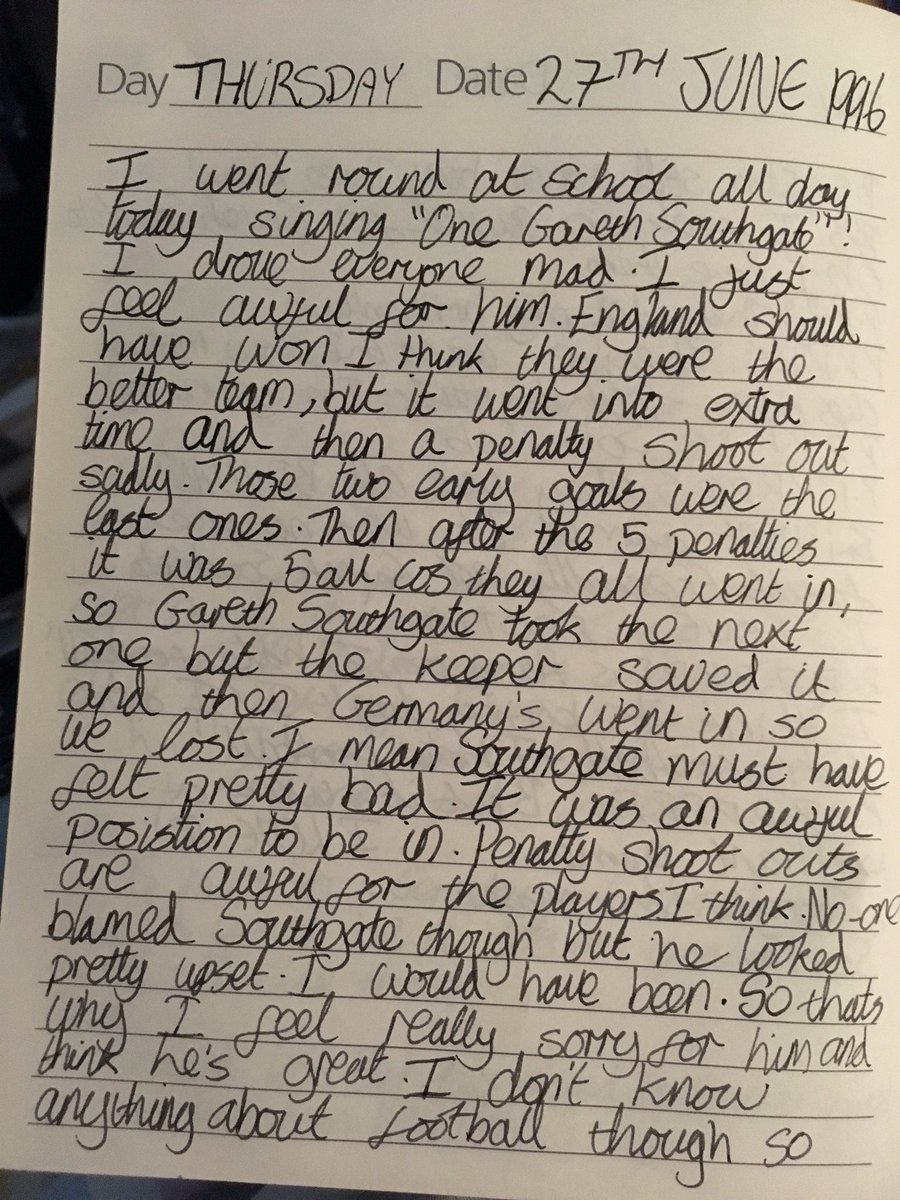 Day THURSDAY Date 27TH JUNE 1996
I went round at school all day
today singing "One Gareth Southgate"!
I drove everyone mad. I just
feel awful for him. England should
have won I think they were the
better team, but it went into extra
time and then a penalty shoot out
sadly. Those two early goals were the
last ones. Then after the 5 penalties
it was 5 all cos they all went in,
so Gareth Southgate took the next
one but the keeper saved it
and then Germany's went in so
we lost. I mean Southgate must have
felt pretty bad. It was an awful
posistion to be in. Penalty shoot outs
are awful for the players I think. No-one
blamed Southgate though but he looked
pretty upset. I would have been. So thats
why I feel really sorry for him and
think he's great. I don't know
anything about football though so